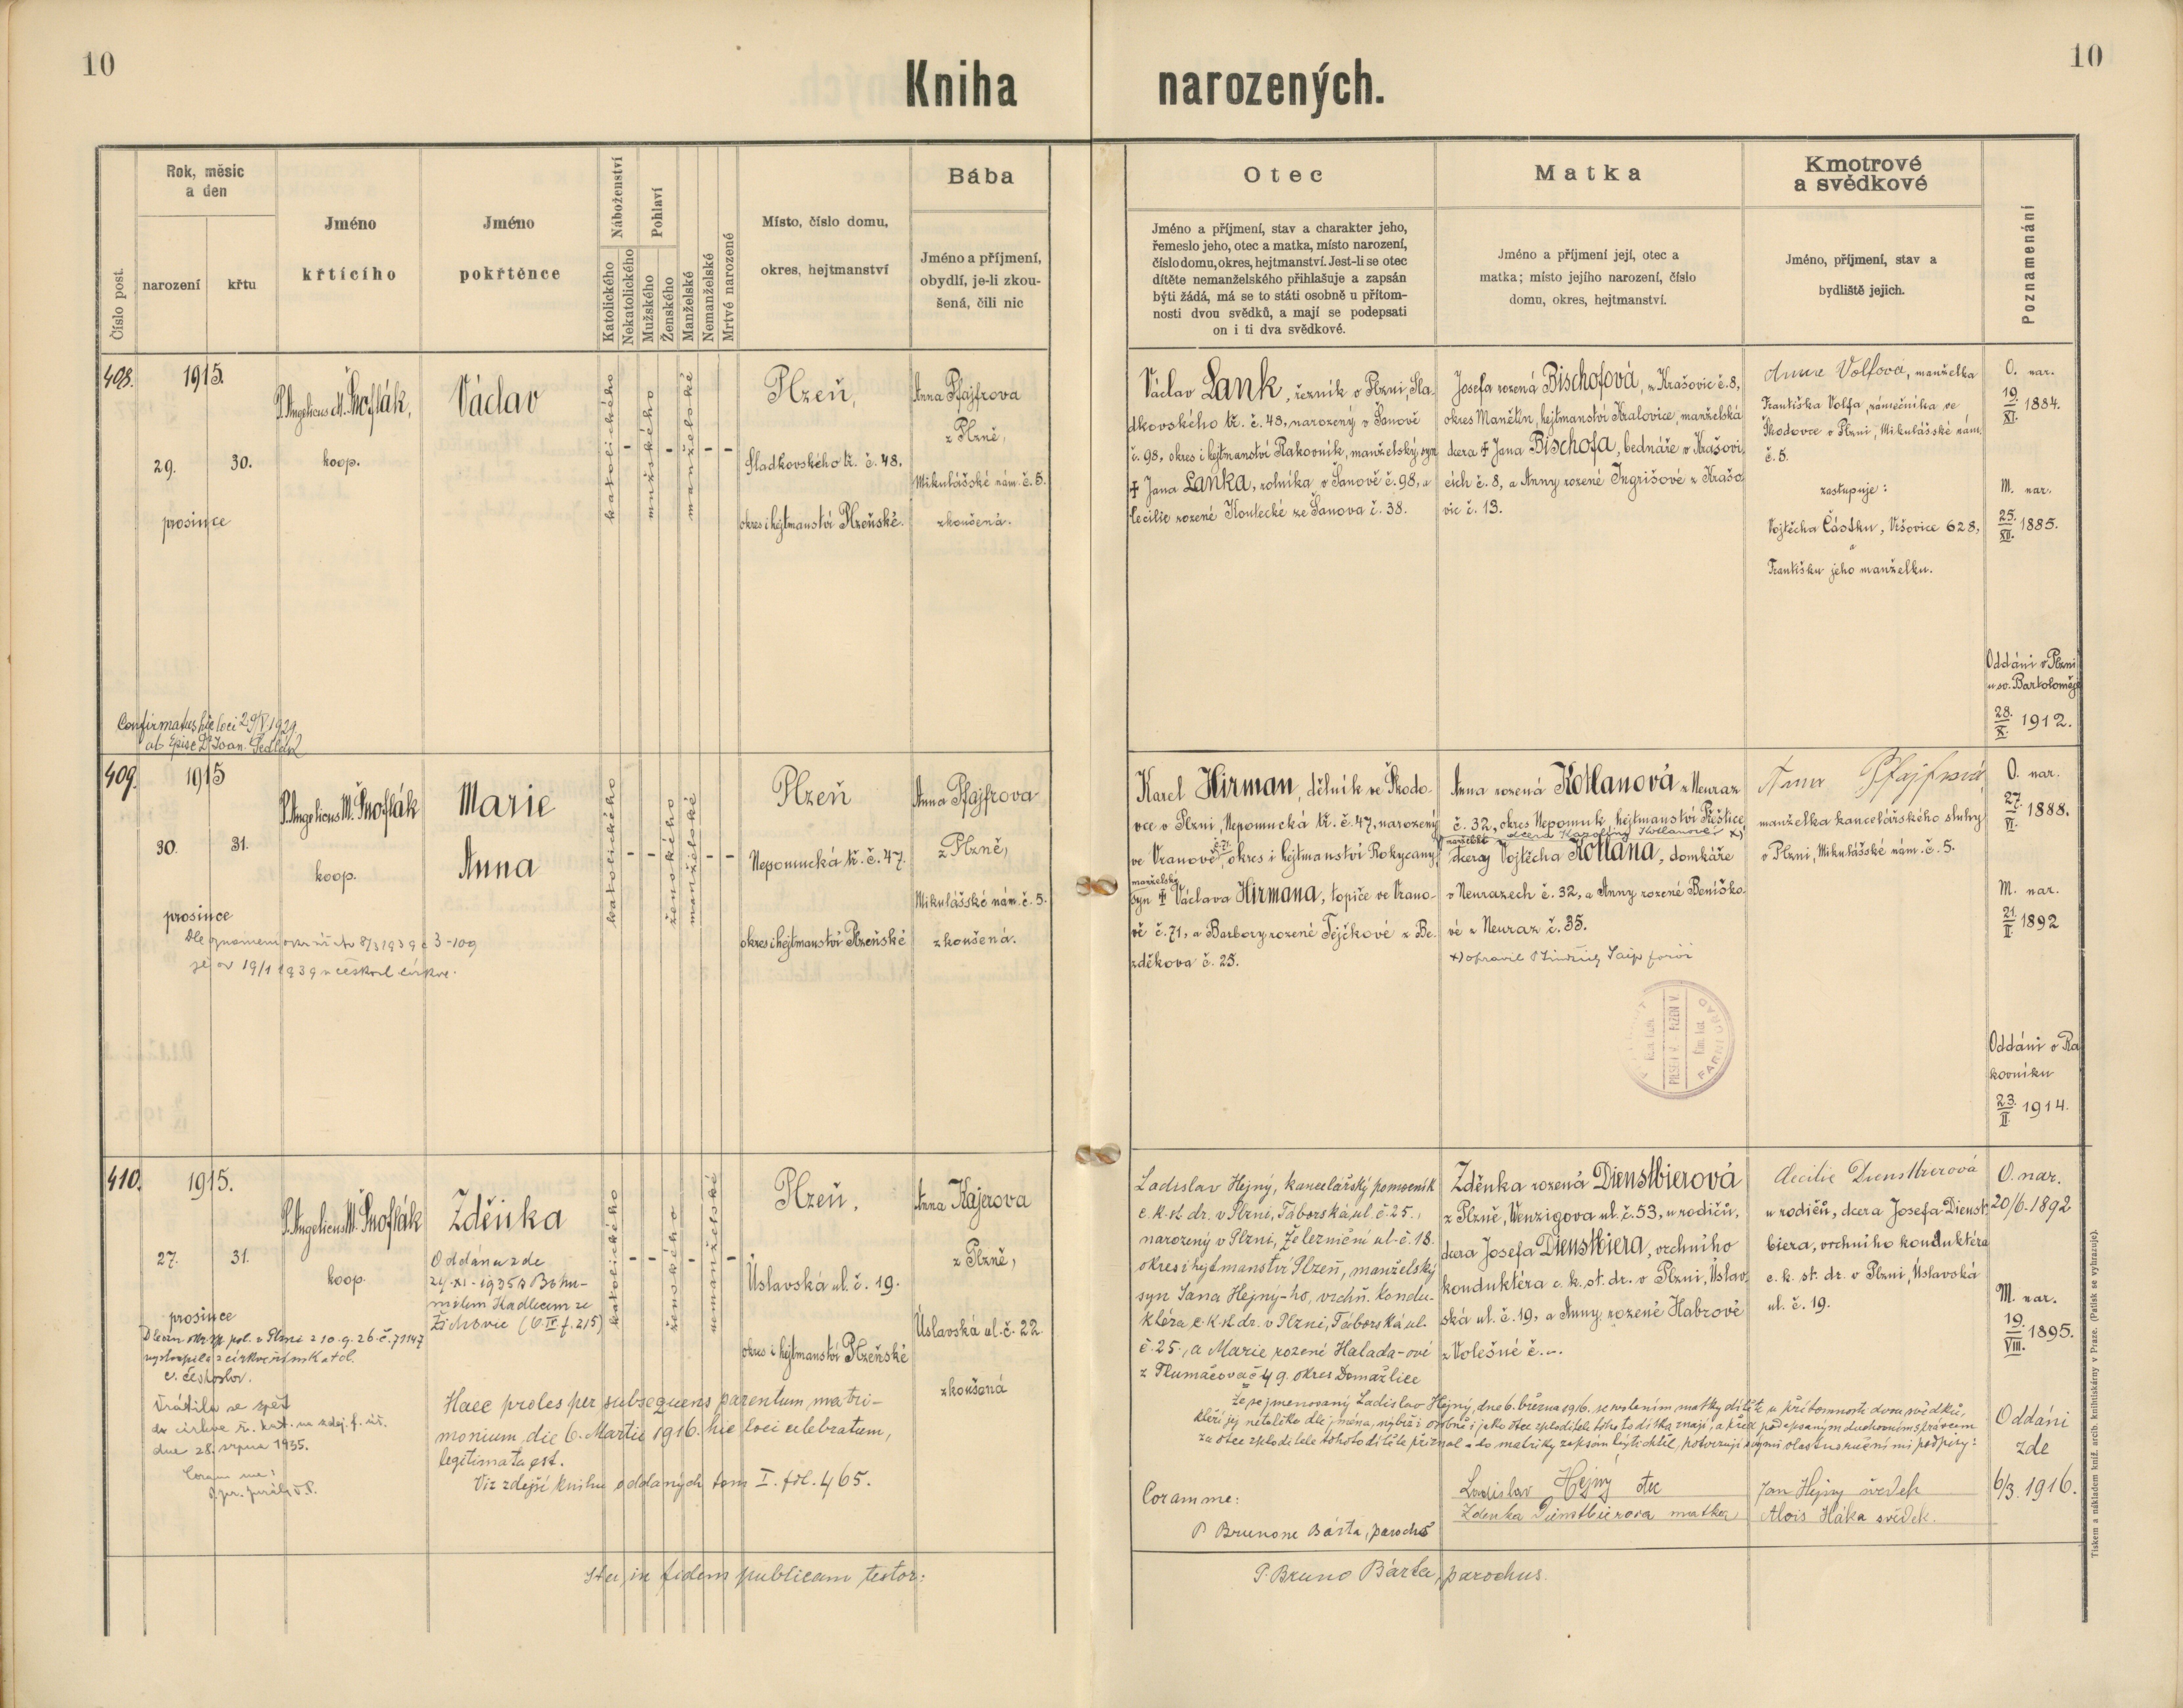 10
10
Kniha narozených.
Číslo post.
Rok, měsíc
a den
narození
křtu
Jméno
křtícího
Jméno
pokřtěnce
Náboženství
Katolického
Nekatolického
Pohlaví
Mužského
Ženského
Manželské
Nemanželské
Mrtvé narozené
Místo, číslo domu,
okres, hejtmanství
Bába
Jméno a příjmení,
obydlí, je-li zkou-
šená, čili nic
Otec
Jméno a příjmení, stav a charakter jeho,
řemeslo jeho, otec a matka, místo narození,
číslo domu, okres, hejtmanství. Jest-li se otec
dítěte nemanželského přihlašuje a zapsán
býti žádá, má se to státi osobně u přítom-
nosti dvou svědků, a mají se podepsati
on i ti dva svědkové.
Matka
Jméno a příjmení její, otec a
matka; místo jejího narození, číslo
domu, okres, hejtmanství.
Kmotrové
a svědkové
Jméno, příjmení, stav a
bydliště jejich.
Poznamenání
408.
1915.
29.
30.
prosince
P. Angelicus M. Šnoflák,
koop.
Václav
katolického
-
mužského
-
manželské
-
-
Plzeň,
Sladkovského tř. č. 48.
okres i hejtmanství Plzeňské.
Anna Pfajfrova
z Plzně,
Mikulášské nám. č. 5.
zkoušená.
Václav Lank, řezník v Plzni, Sla-
dkovského tř. č. 48, narozený v Šanově
č. 98, okres i hejtmanství Rakovník, manželský syn
‡ Jana Lanka, rolníka v Šanově č. 98, a
Cecilie rozené Koutecké ze Šanova č. 38.
Josefa rozená Bischofová, z Krašovic č. 8,
okres Manětín, hejtmanství Kralovice, manželská
dcera ‡ Jana Bischofa, bednáře v Krašovi-
cích č. 8, a Anny rozené Ingrišové z Krašo-
vic č. 13.
Anna Volfova, manželka
Františka Volfa, zámečníka ve
Škodovce v Plzni, Mikulášské nám.
č. 5.
zastupuje:
Vojtěcha Částku, Vršovice 628,
a
Františku jeho manželku.
O. nar.
19./XI. 1884.
M. nar.
25./XII. 1885.
Oddáni v Plzni
u sv. Bartoloměje
28./X. 1912.
Confirmatus hic loci 29/V. 1929
ab Episc. Dr Joan. Sedlák
409.
1915
30.
31.
prosince
P. Angelicus M. Šnoflák
koop.
Marie
Anna
katolického
-
-
ženského
manželské
-
-
Plzeň
Nepomucká tř. č. 47.
okres i hejtmanství Plzeňské
Anna Pfajfrova
z Plzně,
Mikulášské nám. č. 5.
zkoušená.
Karel Hirman, dělník ve Škodo-
vce v Plzni, Nepomucká tř. č. 47, narozený
ve Vranově č. 71. okres i hejtmanství Rokycany,
manželský
syn ‡ Václava Hirmana, topiče ve Vrano-
vě č. 71, a Barbory rozené Tejčkové z Be-
zděkova č. 25.
Anna rozená Kotlanová z Neuraz
č. 32, okres Nepomuk, hejtmanství Přeštice,
manželská dcera Karolíny Kotlanové x)
dcera Vojtěcha Kotlana, domkáře
v Neurazech č. 32, a Anny rozené Beníško-
vé z Neuraz č. 35.
x) opravil
Anna Pfajfrová,
manželka kancelářského sluhy
v Plzni, Mikulášské nám. č. 5.
O. nar.
27./VI. 1888.
M. nar.
21./II. 1892
Oddáni v Ra-
kovníku
23./II. 1914.
Dle 8/3 1939 č 3-109
je od 19/1 1939 v českosl. církve.
410.
1915.
27.
31.
prosince
P. Angelicus M. Šnoflák
koop.
Zděnka
Oddána zde
24.-XI.-1935 s Bohu-
milem Hadlecem ze
Žichovic (6. IV f. 215)
katolického
-
-
ženského
-
nemanželské
-
Plzeň,
Úslavská ul. č. 19.
okres i hejtmanství Plzeňské
Anna Kajerova
z Plzně,
Úslavská ul. č. 22
zkoušená
Dle ozn. okr. spr. pol. v Plzni z 10. 9. 26. č. 71147
vystoupila z církve římskatol.
c. českoslov.
Vrátila se zpět
do církve ř. kat. na zdej. f. úř.
dne 28. srpna 1935.
Coram me:
Haec proles per subsequens parentum matri-
monium, die 6. Martii 1916. hic loci celebratum,
legitimata est.
Viz zdejší knihu oddaných tom I. fol. 465.
Ladislav Hejný, kancelářský pomocník
c. k. st. dr. v Plzni, Táborská ul. č. 25.,
narozený v Plzni, Železniční ul. č. 18.
okres i hejtmanství Plzeň, manželský
syn Jana Hejný-ho, vrchn. kondu-
ktéra c. k. st. dr. v Plzni, Táborská ul.
č. 25., a Marie, rozené Halada-ové
z Tlumačova č 49. okres Domažlice
Zděnka rozená Dienstbierová
z Plzně, Wenzigova ul. č. 53, u rodičů,
dcera Josefa Dienstbiera, vrchního
konduktéra c. k. st. dr. v Plzni, Úslav-
ská ul. č. 19, a Anny, rozené Habrové
z Volešné č. -.
Cecilie Dienstbierová
u rodičů, dcera Josefa Dienst-
biera, vrchního konduktéra
c. k. st. dr. v Plzni, Úslavská
ul. č. 19.
O. nar.
20/6. 1892
M. nar.
19./VIII. 1895.
Že se jmenovaný Ladislav Hejný, dne 6. března 1916. se svolením matky dítěte u přítomnosti dvou svědků,
kteří jej netoliko dle jména, nýbrž i osobně i jako otce zploditele tohoto dítka znají, a před podepsaným duchovním správcem
za otce zploditele tohoto dítěte přiznal a do matriky zapsán býti chtěl, potvrzují svými vlastnoručními podpisy:
Oddáni
zde
6/3. 1916.
Coram me:
P. Brunone Bárta, parocho
Ladislav Hejný otec
Zdenka Dienstbierova matka
Jan Hejny svědek
Alois Háka svědek.
Ita in fidem publicam testor:
P. Bruno Bárta, parochus.
Tiskem a nákladem kníž. arcib. knihtiskárny v Praze. (Patisk se vyhrazuje).